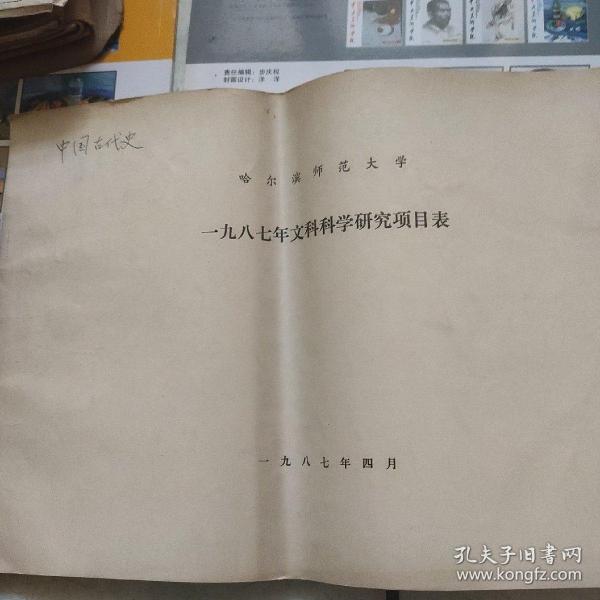 责任编辑：步庆权
封面设计：洋洋
中国古代史
哈尔滨师范大学
一九八七年文科科学研究项目表
一九八七年四月
孔夫子旧书网
www.kongfz.com